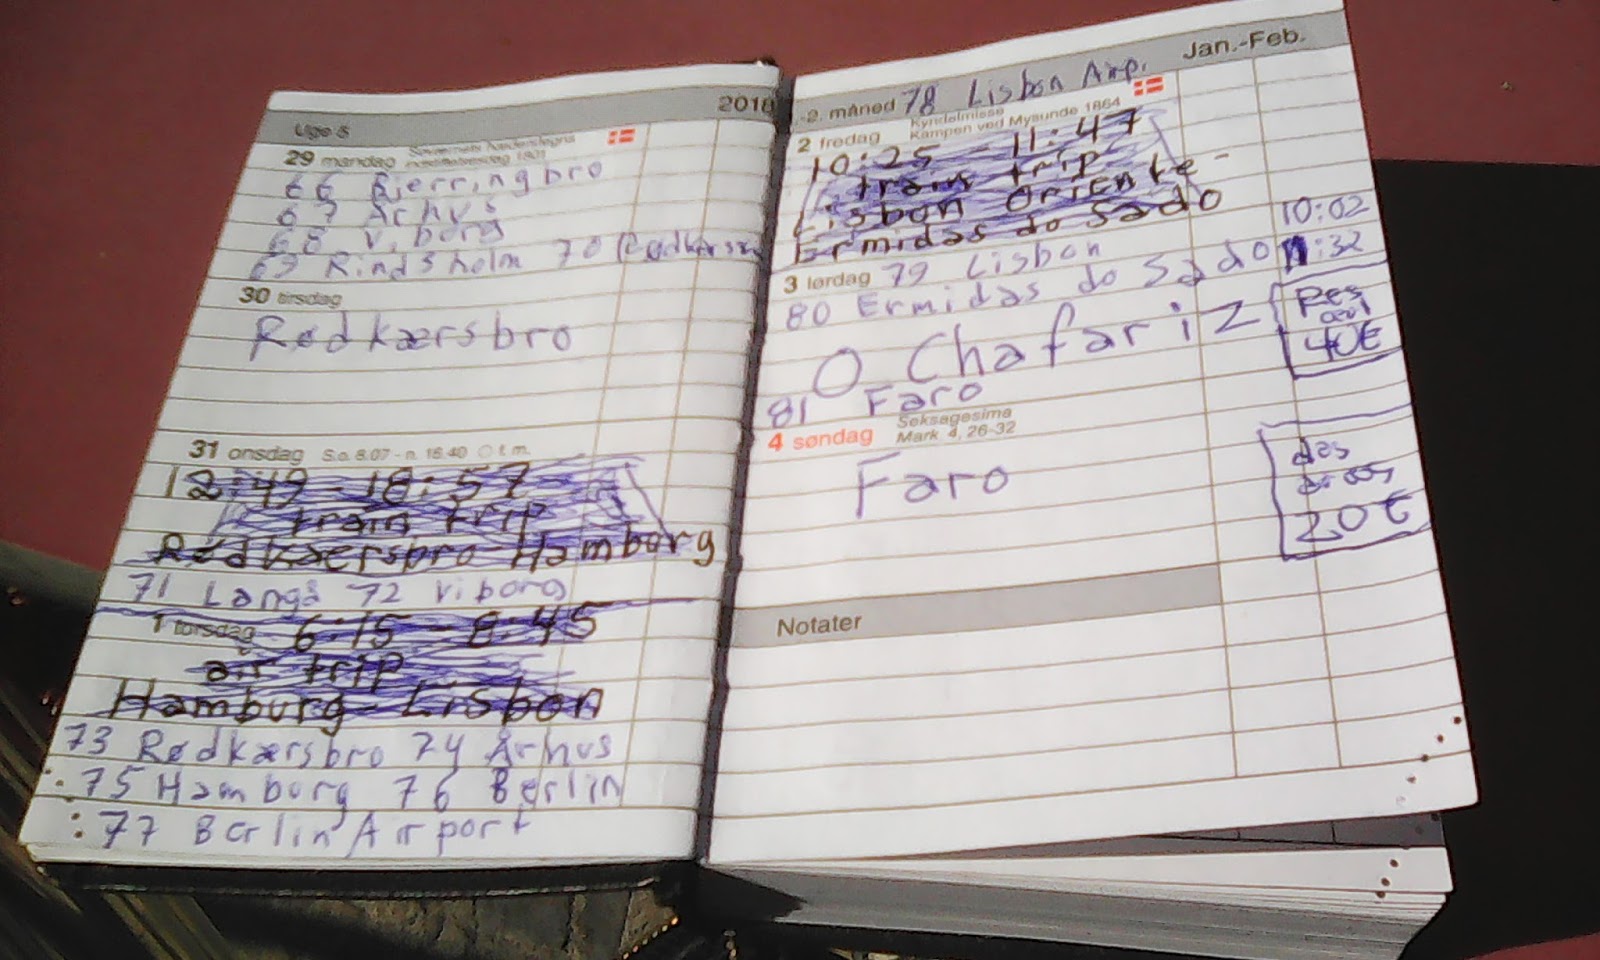 Uge 5 2018
29 mandag
66 Bjerringbro
67 Århus
68 Viborg
69 Rindsholm 70 Rødkærsbro
30 tirsdag
Rødkærsbro
31 onsdag S.o. 8.07 - n. 16.40 f. m.
12:49 - 18:57
train trip
Rødkærsbro-Hamburg
71 Langå 72 Viborg
1 torsdag 6:15 - 8:45
air trip
Hamburg-Lisbon
73 Rødkærsbro 74 Århus
75 Hamburg 76 Berlin
77 Berlin Airport
Jan.-Feb.
1.-2. måned 78 Lisbon Airp.
2 fredag Kyndelmisse
Kampen ved Mysunde 1864
10:25 - 11:47
train trip
Lisbon Oriente -
Ermidas do Sado
3 lørdag 79 Lisbon
10:02
80 Ermidas do Sado 11:32
O Chafariz
40€
81 Faro
4 søndag Seksagesima
Mark 4, 26-32
Faro
das
20€
Notater